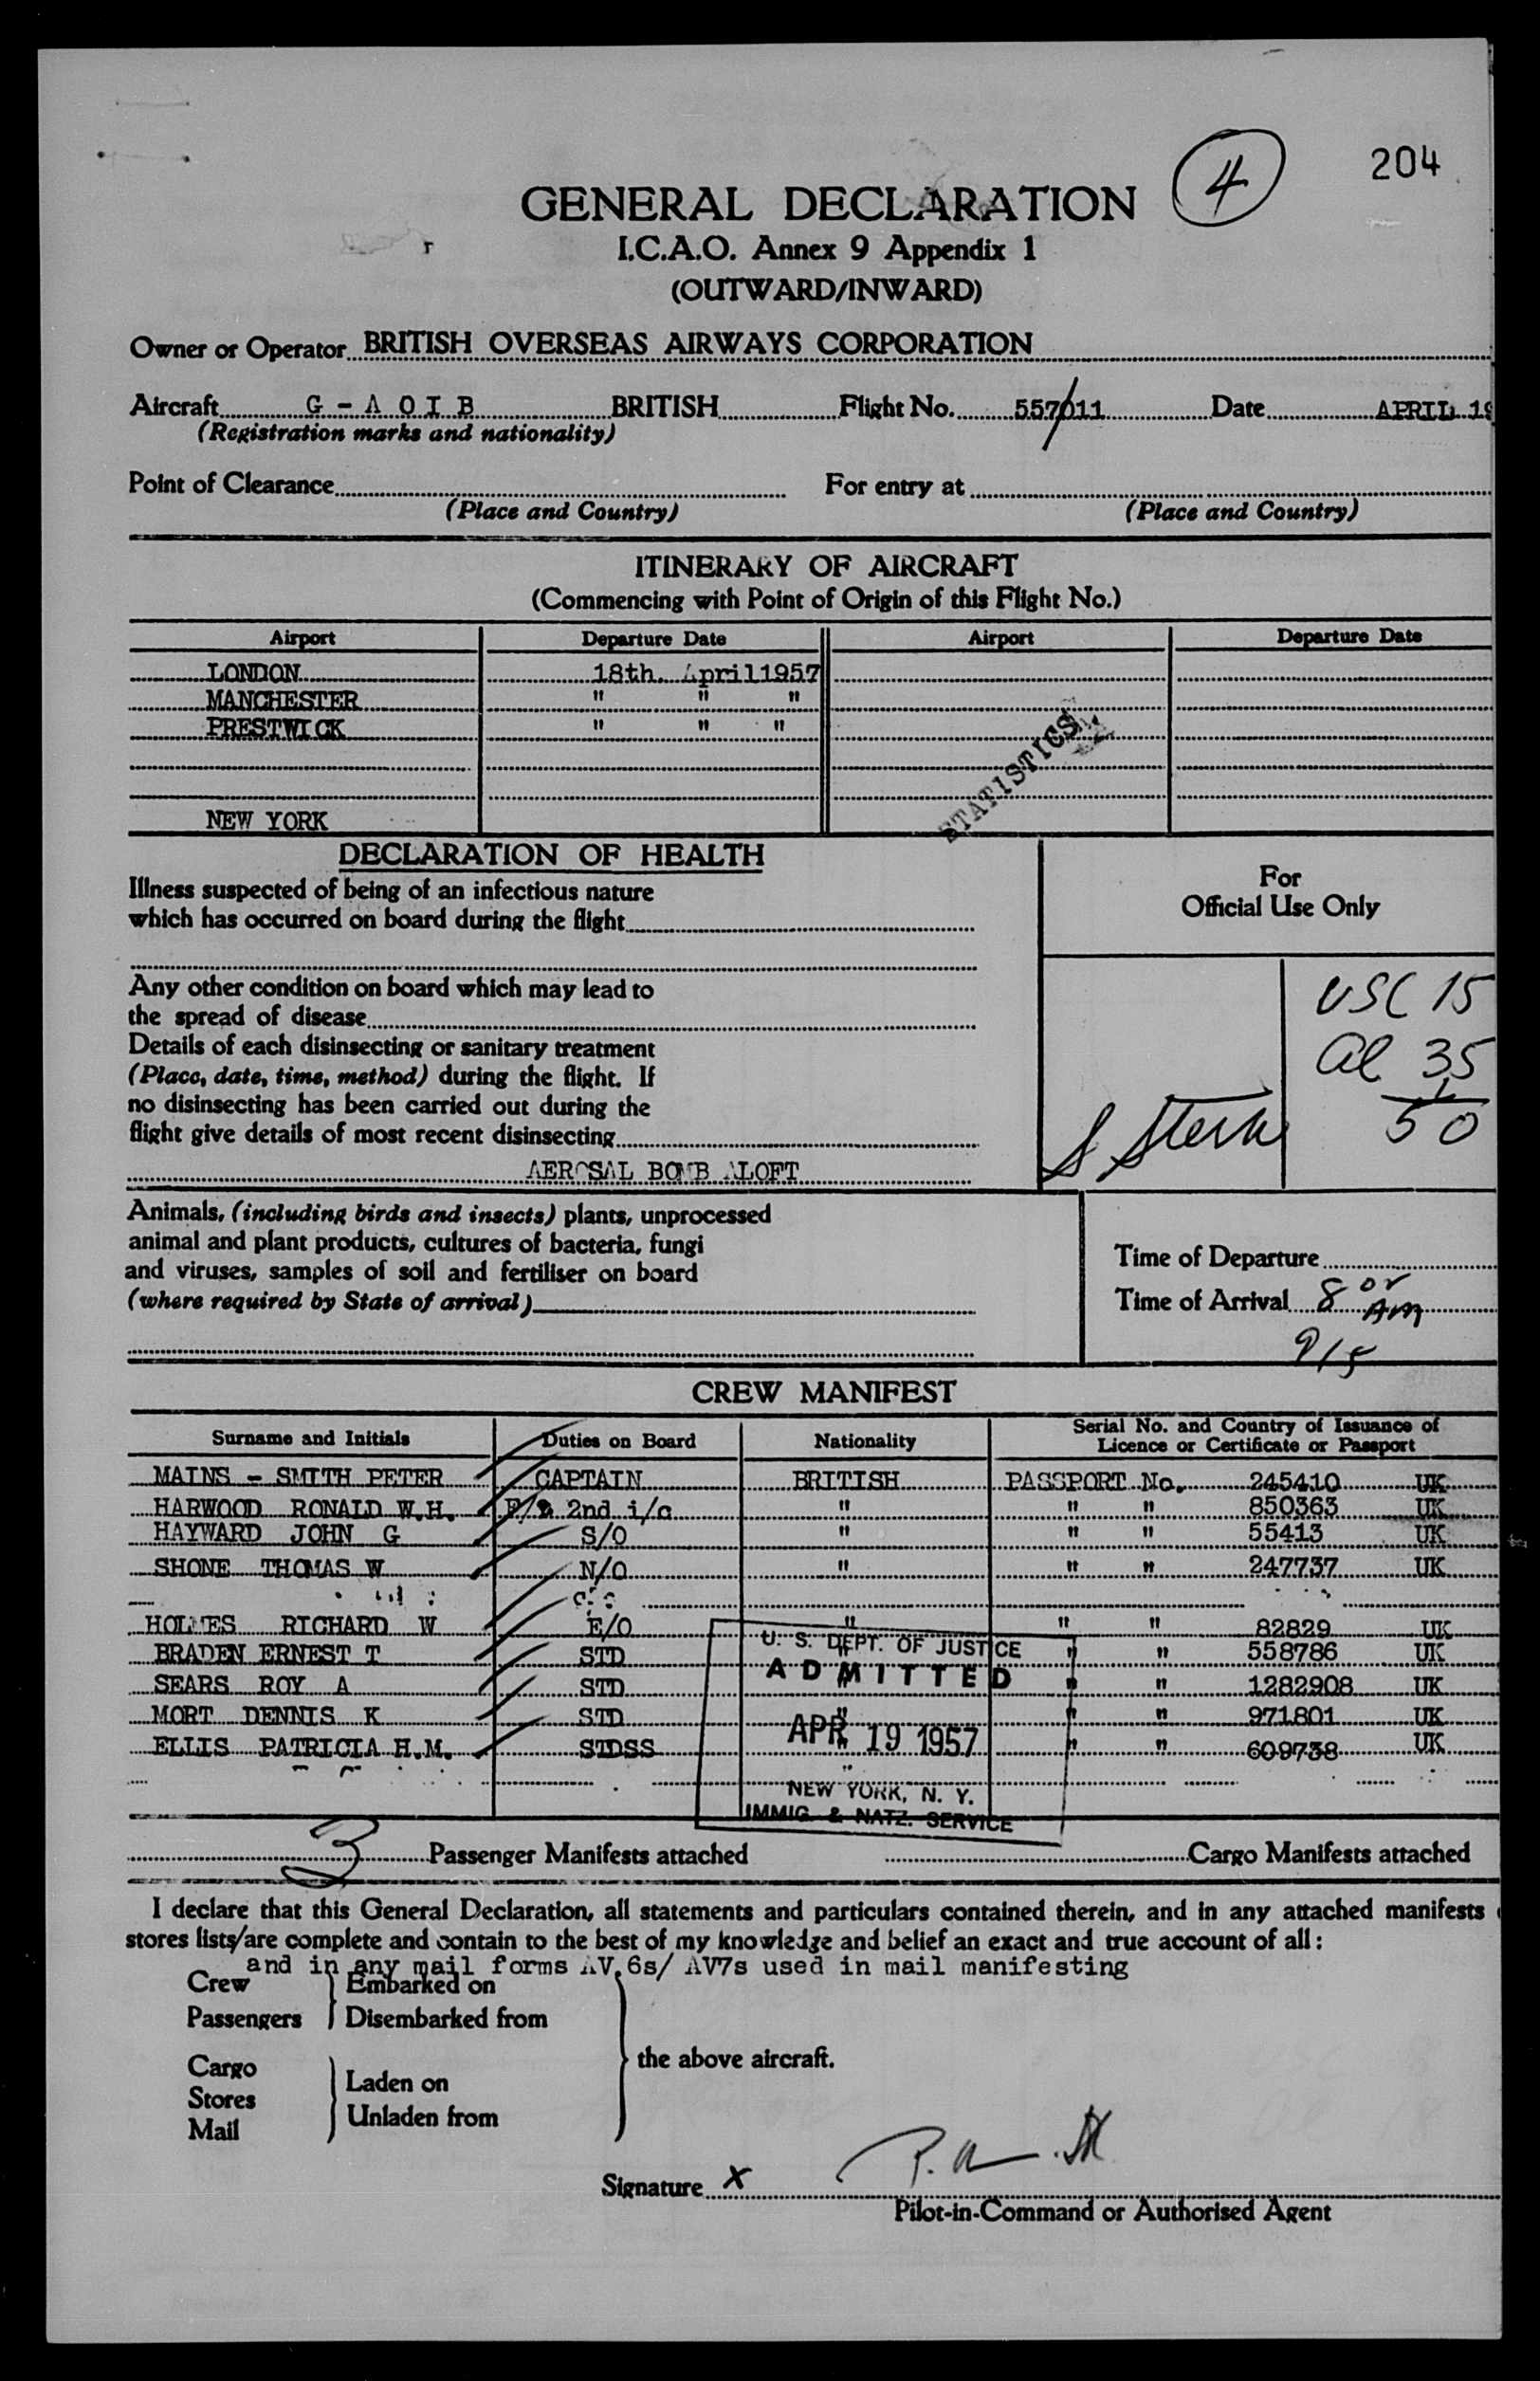 204
4
GENERAL DECLARATION
I.C.A.O. Annex 9 Appendix 1
(OUTWARD/INWARD)
Owner or Operator BRITISH OVERSEAS AIRWAYS CORPORATION
Aircraft G - A O I B BRITISH Flight No. 557/011 Date APRIL 19
(Registration marks and nationality)
Point of Clearance For entry at
(Place and Country) (Place and Country)
ITINERARY OF AIRCRAFT
(Commencing with Point of Origin of this Flight No.)
Airport Departure Date Airport Departure Date
LONDON 18th. April1957
MANCHESTER " " "
PRESTWICK " " "
STATISTICS
NEW YORK
DECLARATION OF HEALTH
For
Official Use Only
Illness suspected of being of an infectious nature
which has occurred on board during the flight
Any other condition on board which may lead to
the spread of disease
Details of each disinsecting or sanitary treatment
(Place, date, time, method) during the flight. If
no disinsecting has been carried out during the
flight give details of most recent disinsecting
AEROSAL BOMB ALOFT
USC 15
al 35
50
Animals, (including birds and insects) plants, unprocessed
animal and plant products, cultures of bacteria, fungi
and viruses, samples of soil and fertiliser on board
(where required by State of arrival)
Time of Departure
Time of Arrival 8 Am
915
CREW MANIFEST
Surname and Initials Duties on Board Nationality Serial No. and Country of Issuance of
Licence or Certificate or Passport
MAINS - SMITH PETER CAPTAIN BRITISH PASSPORT No. 245410 UK
HARWOOD RONALD W.H. 2nd i/c " " " 850363 UK
HAYWARD JOHN G S/O " " " 55413 UK
SHONE THOMAS W N/O " " " 247737 UK
HOLMES RICHARD W E/O " " " 82829 UK
BRADEN ERNEST T STD " " " 558786 UK
SEARS ROY A STD " " " 1282908 UK
MORT DENNIS K STD " " " 971801 UK
ELLIS PATRICIA H.M. STDSS " " " 609738 UK
U. S. DEPT. OF JUSTICE
ADMITTED
APR 19 1957
NEW YORK, N. Y.
IMMIG. & NATZ. SERVICE
3 Passenger Manifests attached Cargo Manifests attached
I declare that this General Declaration, all statements and particulars contained therein, and in any attached manifests
stores lists/are complete and contain to the best of my knowledge and belief an exact and true account of all:
and in any mail forms AV.6s/ AV7s used in mail manifesting
Crew Embarked on
Passengers Disembarked from
the above aircraft.
Cargo
Laden on
Stores
Unladen from
Mail
Signature X
Pilot-in-Command or Authorised Agent